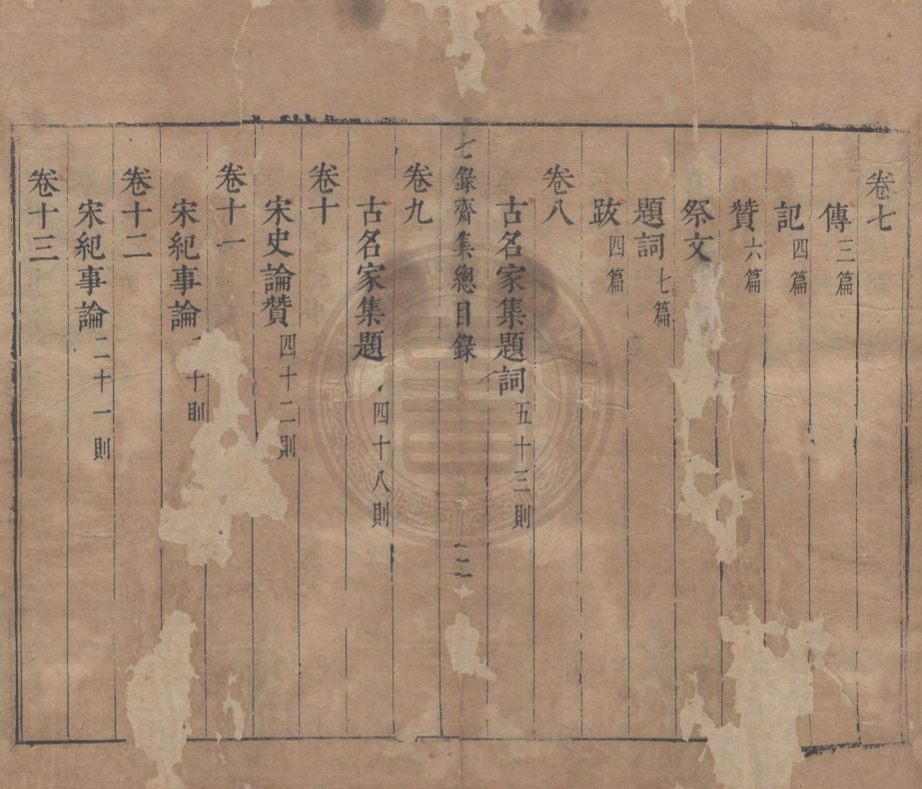 卷七
傳三篇
記四篇
贊六篇
祭文
題詞七篇
跋四篇
卷八
古名家集題詞五十三則
七錄齋集總目錄 二
卷九
古名家集題 四十八則
卷十
宋史論贊四十二則
卷十一
宋紀事論 十則
卷十二
宋紀事論二十一則
卷十三